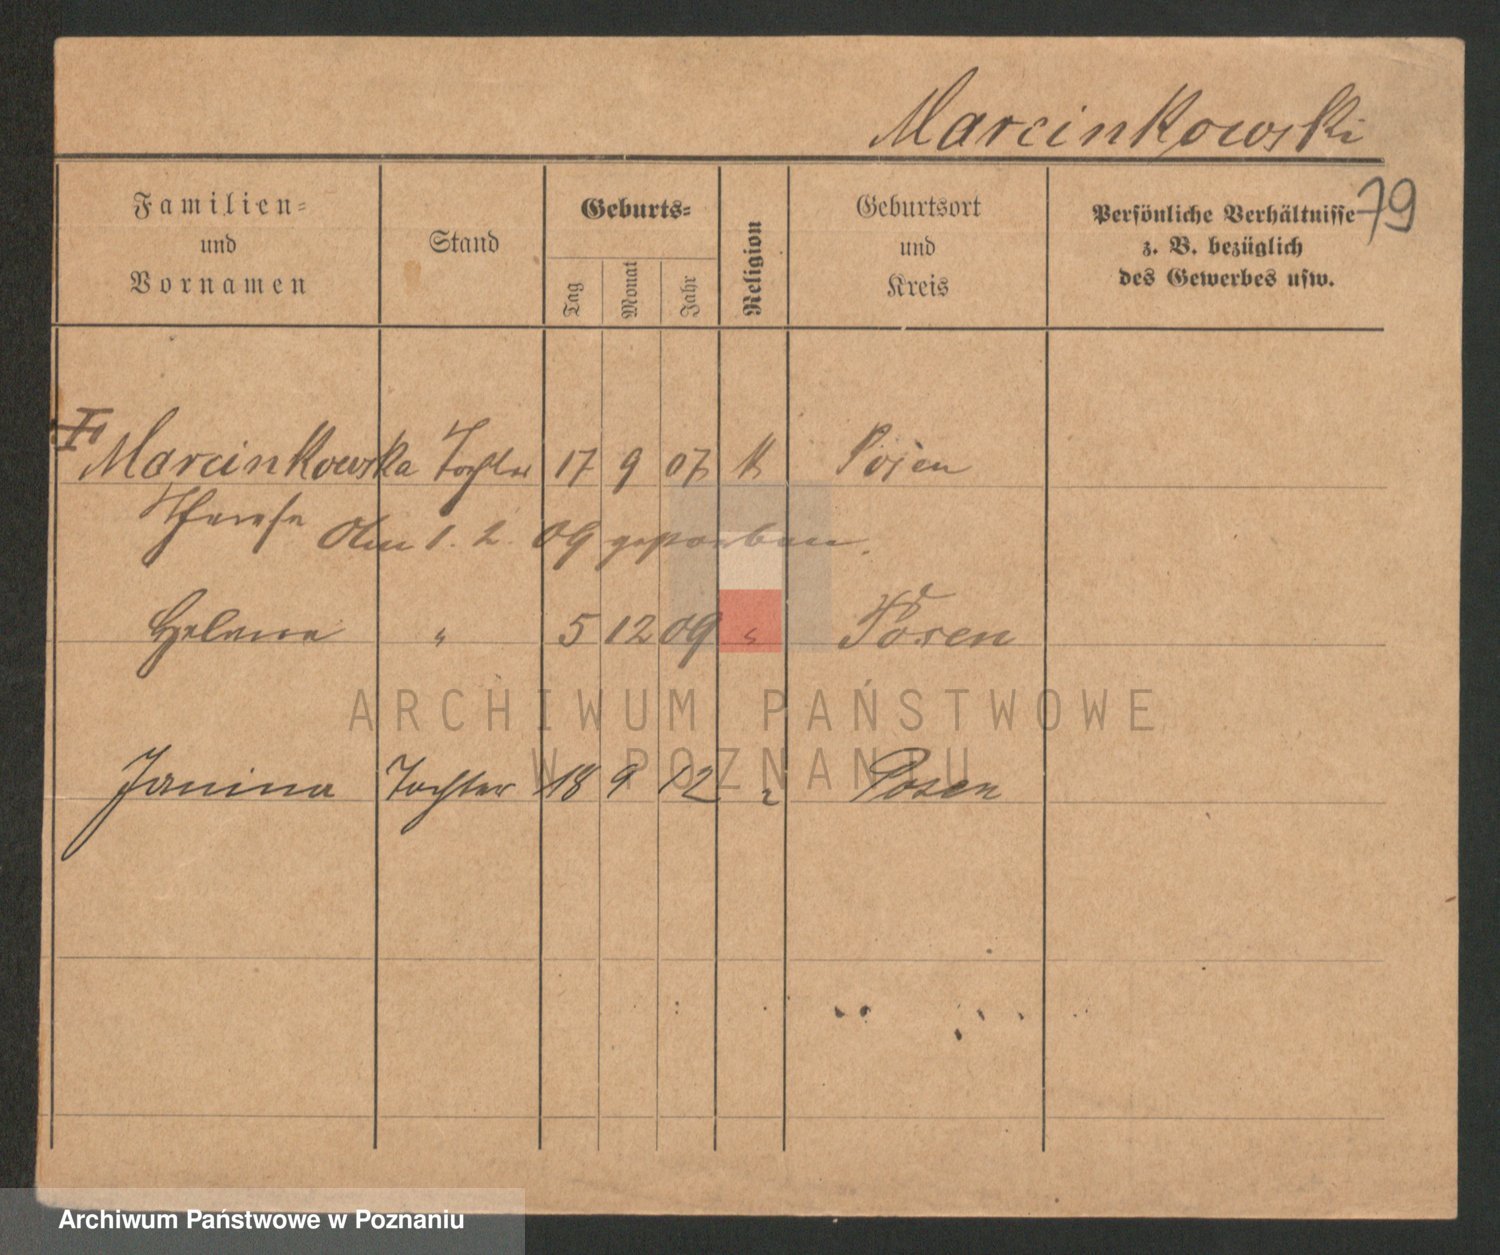 Marcinkowski
79
Familien=
und
Vornamen
Stand
Geburts=
Tag
Monat
Jahr
Religion
Geburtsort
und
Kreis
Persönliche Verhältnisse
z. B. bezüglich
des Gewerbes usw.
Marcinkowska Tochter 17 9 07 k Posen
Therese
Am 1. 2. 09 gestorben.
Helene " 5 12 09 " Posen
ARCHIWUM PAŃSTWOWE
W POZNANIU
Janina Tochter 18 9 12 " Posen
Archiwum Państwowe w Poznaniu